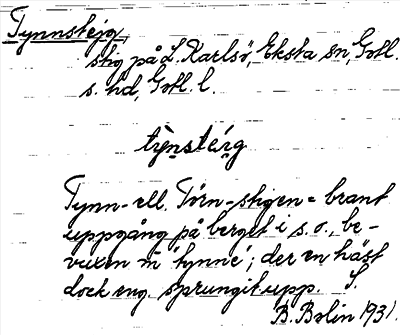 Tynnstejg,
stig på L. Karlsö, Eksta sn, Gotl.
s. hd, Gotl. l.
týnstérg
Tynn- ell. Törn-stigen = brant
uppgång på berget i s. o., be-
vuxen m 'tynne'; der en häst
dock eng. sprungit upp. S.
B. Bolin 1931.